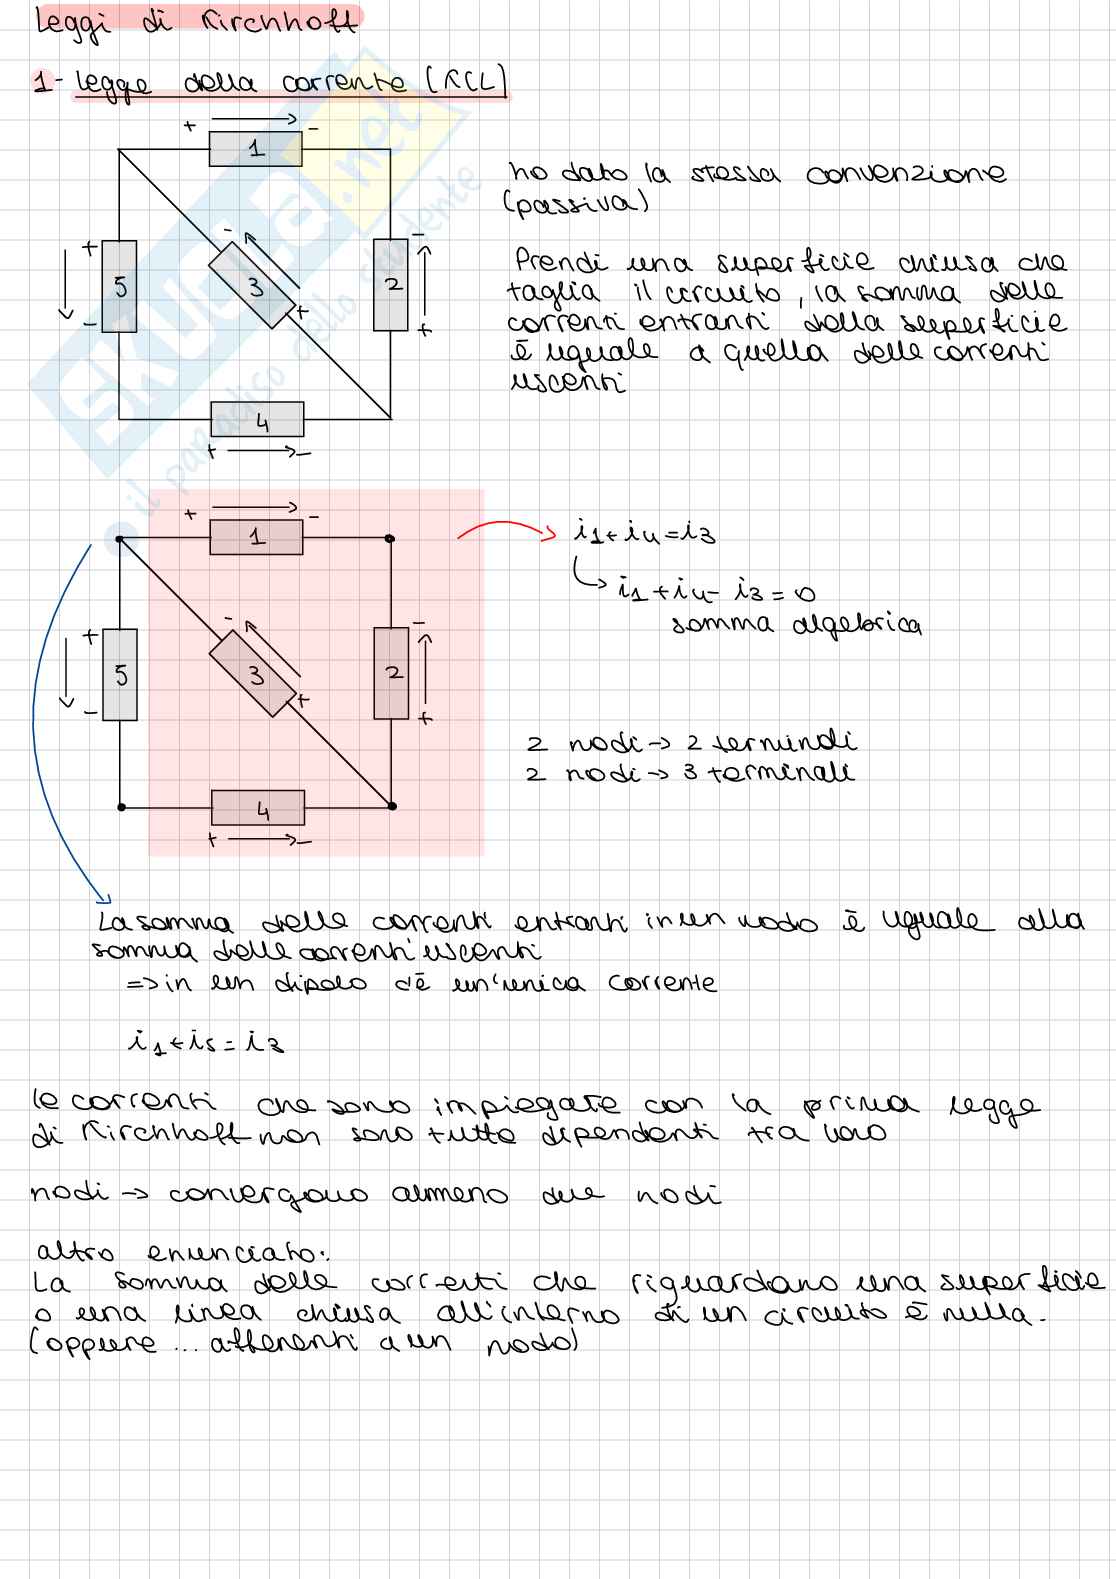 Leggi di Kirchhoff
1- legge della corrente (KCL)
+ -
1
ho dato la stessa convenzione
(passiva)
+ - -
5 3 2
- + +
Prendi una superficie chiusa che
taglia il circuito, la somma delle
correnti entranti della superficie
è uguale a quella delle correnti
uscenti
4
+ -
SKUOLA.net
il paradiso dello studente
+ -
1
i1+i4=i3
i1+i4-i3=0
somma algebrica
+ - -
5 3 2
- + +
2 nodi → 2 terminali
2 nodi → 3 terminali
4
+ -
La somma delle correnti entranti in un nodo è uguale alla
somma delle correnti uscenti
=> in un dipolo c'è un'unica corrente
i1+i5=i3
le correnti che sono impiegate con la prima legge
di Kirchhoff non sono tutte dipendenti tra loro
nodi → convergono almeno due nodi
altro enunciato:
La somma delle correnti che riguardano una superficie
o una linea chiusa all'interno di un circuito è nulla.
(oppure ... afferenti a un nodo)